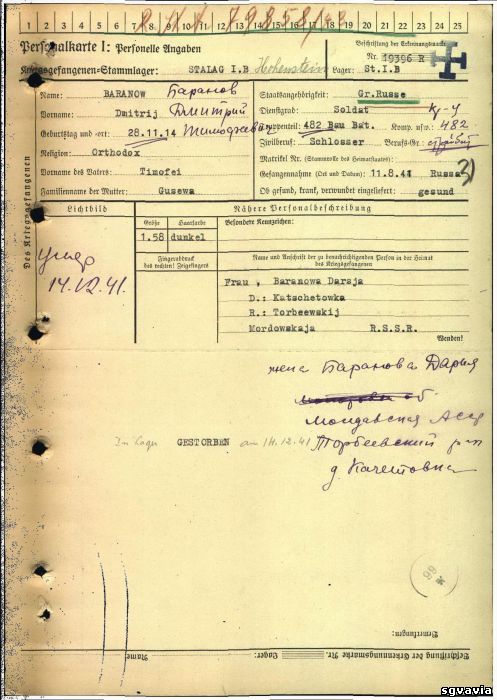 1 2 3 4 5 6 7 8 9 10 11 12 13 14 15 16 17 18 19 20 21 22 23 24 25
Personalkarte I: Personelle Angaben
Beschriftung der Erkennungsmarke
Kriegsgefangenen-Stammlager: STALAG I.B Hohenstein
Nr. 19396 R
Lager: St.I.B
Des Kriegsgefangenen
Name: BARANOW Баранов
Vorname: Dmitrij Дмитрий
Geburtstag und -ort: 28.11.14 Тимофеевич
Religion: Orthodox
Vorname des Vaters: Timofei
Familienname der Mutter: Gusewa
Staatsangehörigkeit: Gr.Russe
Dienstgrad: Soldat
Truppenteil: 482 Bau Bat. Komp. usw.: 482
Zivilberuf: Schlosser Berufs-Gr.:
Matrikel Nr. (Stammrolle des Heimatstaates):
Gefangennahme (Ort und Datum): 11.8.41 Russa
Ob gesund, krank, verwundet eingeliefert: gesund
Lichtbild
Nähere Personalbeschreibung
Größe
Haarfarbe
Besondere Kennzeichen:
1.58
dunkel
Fingerabdruck
des rechten! Zeigefingers
Name und Anschrift der zu benachrichtigenden Person in der Heimat
des Kriegsgefangenen
умер
14.12.41.
Frau , Baranowa Darsja
D.: Katschetowka
R.: Torbeewskij
Mordowskaja R.S.S.R.
Wenden!
жена Баранова Дарья
Мордавская Асср
Im Lager GESTORBEN am 14.12.41
Торбеевский р-н
д Качетовка
99
Bemerkungen:
Beschriftung der Erkennungsmarke Nr. Lager: Name:
sgvavia